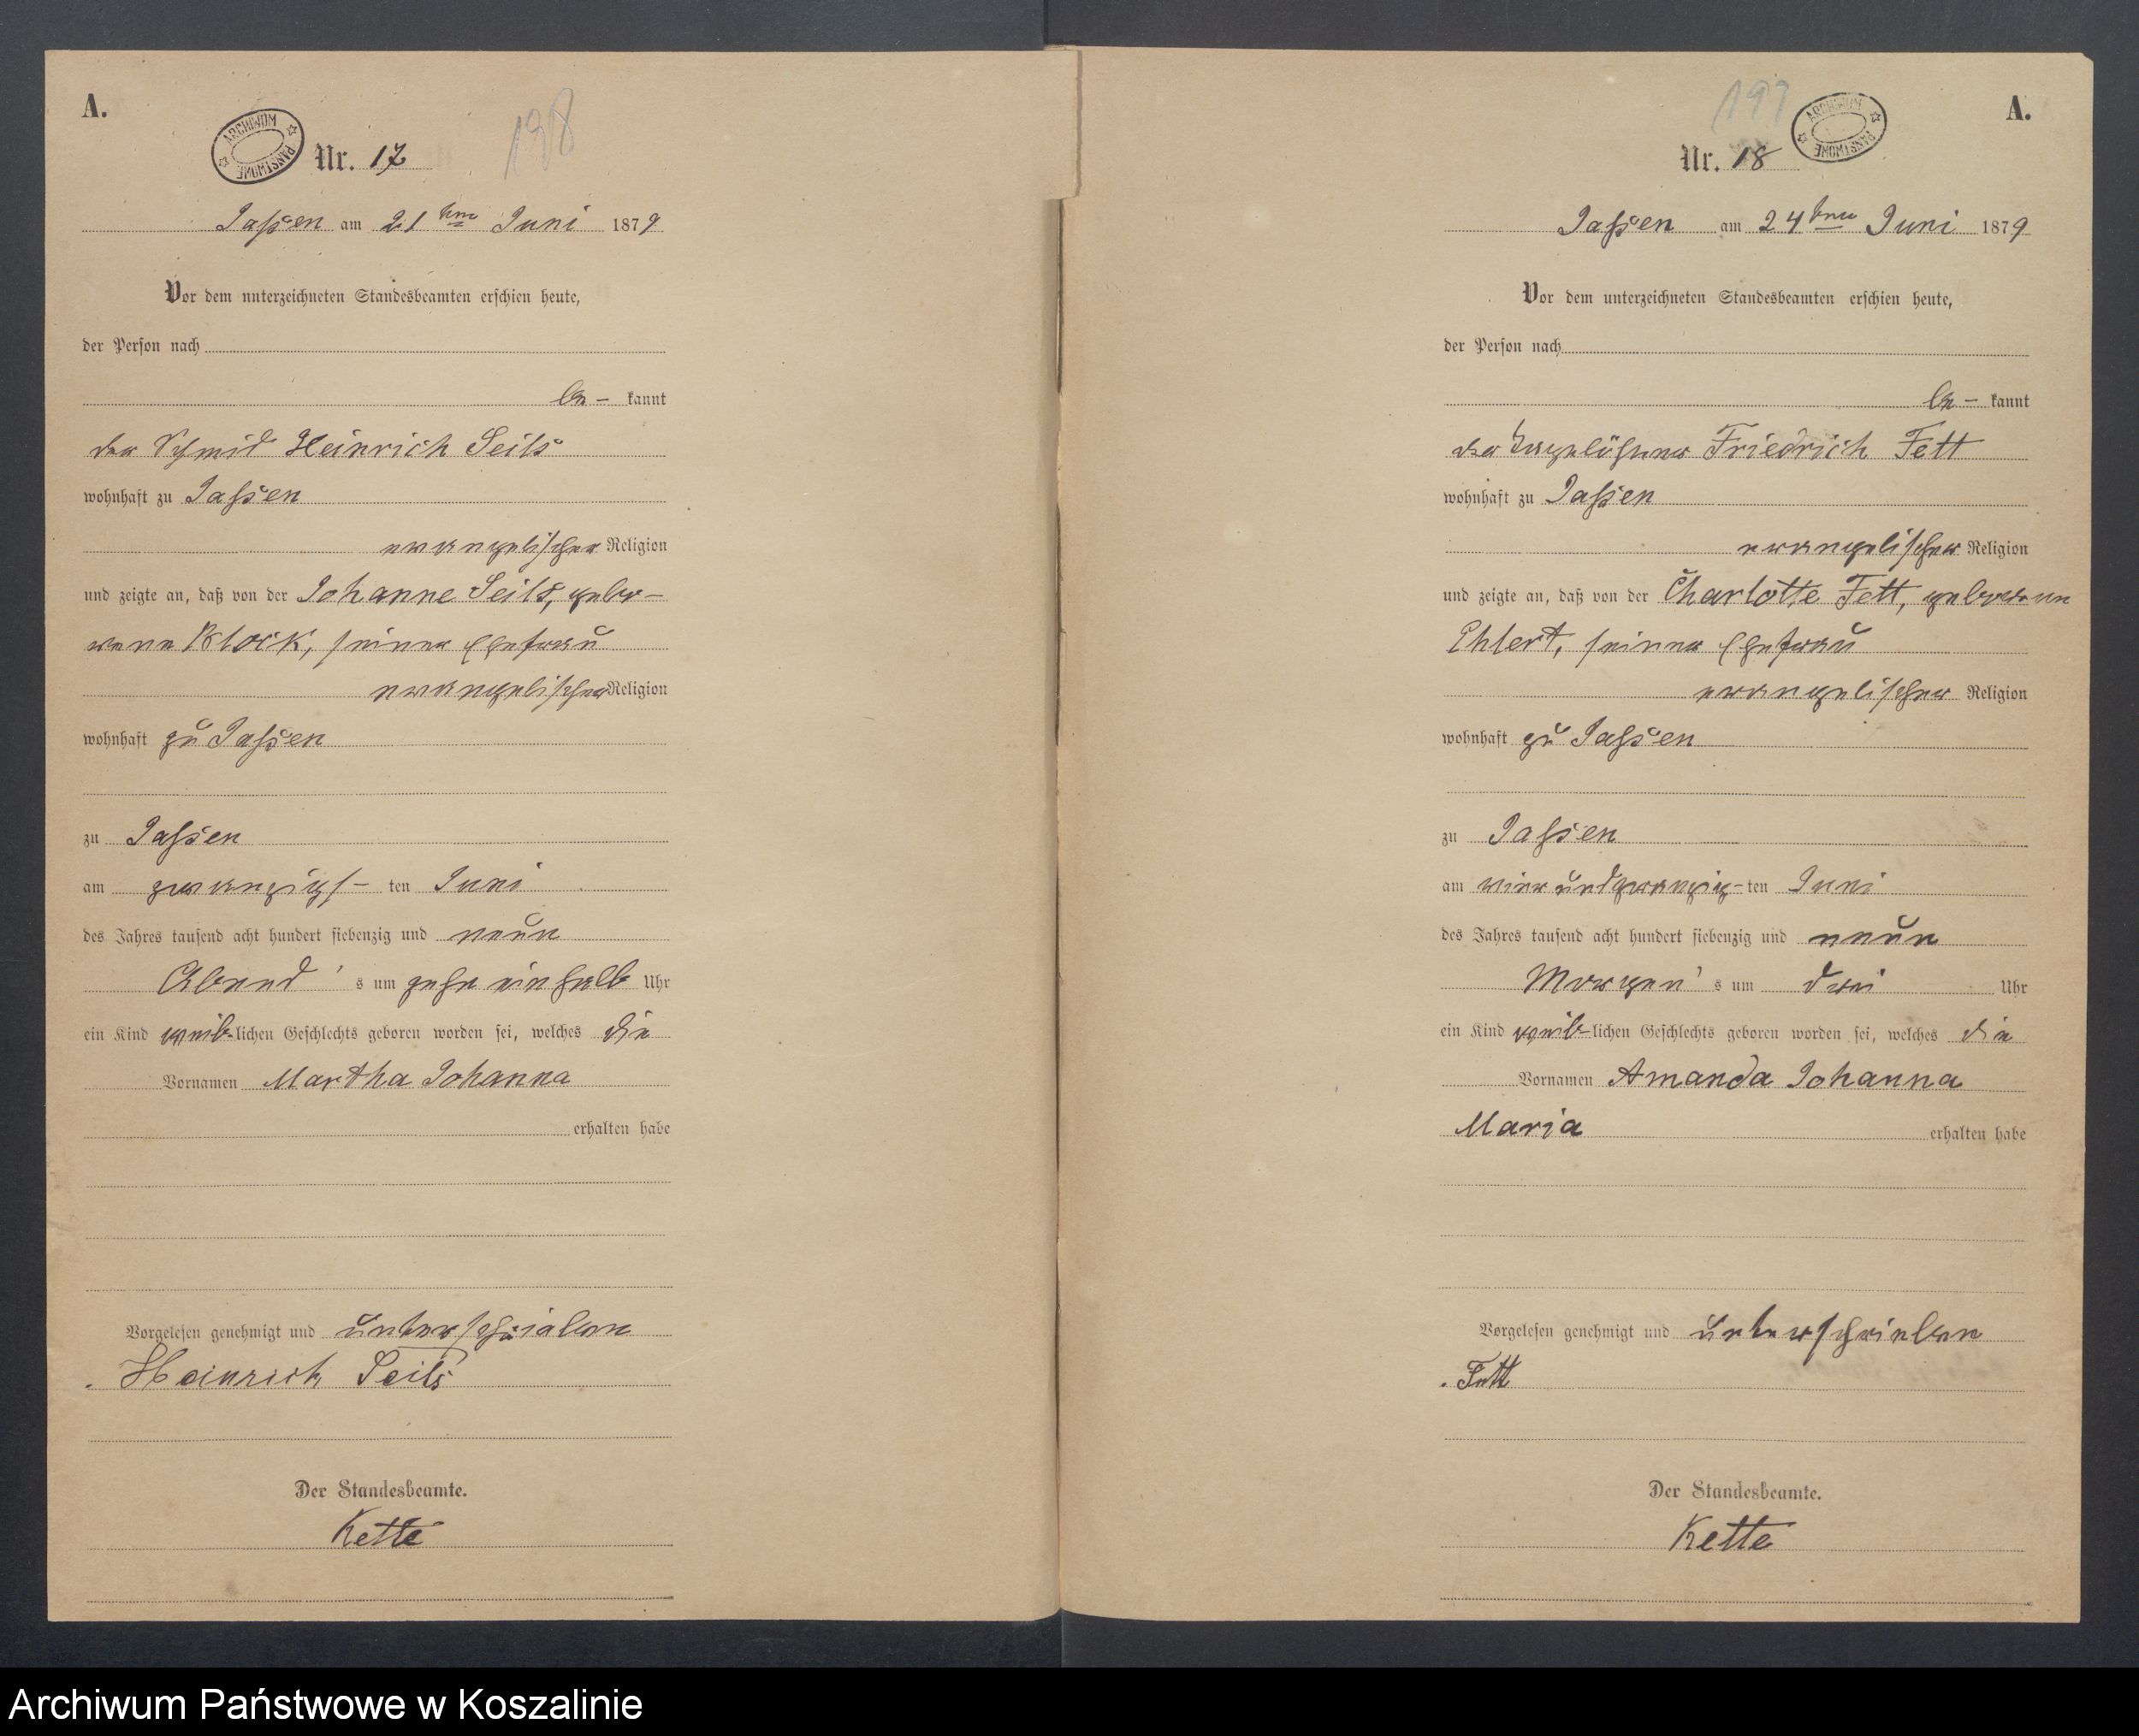 A.
ARCHIWUM PAŃSTWOWE
138
Nr. 17
Jassen am 21ten Juni 1879
Vor dem unterzeichneten Standesbeamten erschien heute,
der Person nach
be- kannt
der Schmid Heinrich Seils
wohnhaft zu Jassen
evangelischer Religion
und zeigte an, daß von der Johanne Seils, gebo-
rene Block, seiner Ehefrau
evangelischer Religion
wohnhaft zu Jassen
zu Jassen
am zwanzigs- ten Juni
des Jahres tausend acht hundert siebenzig und neun
Abend's um zehn ein halb Uhr
ein Kind weib-lichen Geschlechts geboren worden sei, welches die
Vornamen Martha Johanna
erhalten habe
Vorgelesen genehmigt und unterschrieben
Heinrich Seils
Der Standesbeamte.
Kette
199
ARCHIWUM PAŃSTWOWE
A.
Nr. 18
Jassen am 24ten Juni 1879
Vor dem unterzeichneten Standesbeamten erschien heute,
der Person nach
be- kannt
der Tagelöhner Friedrich Fett
wohnhaft zu Jassen
evangelischer Religion
und zeigte an, daß von der Charlotte Fett, geborene
Ehlert, seiner Ehefrau
evangelischer Religion
wohnhaft zu Jassen
zu Jassen
am vierundzwanzig-ten Juni
des Jahres tausend acht hundert siebenzig und neun
Morgen's um drei Uhr
ein Kind weib-lichen Geschlechts geboren worden sei, welches die
Vornamen Amanda Johanna
Maria erhalten habe
Vorgelesen genehmigt und unterschrieben
Fett
Der Standesbeamte.
Kette
Archiwum Państwowe w Koszalinie